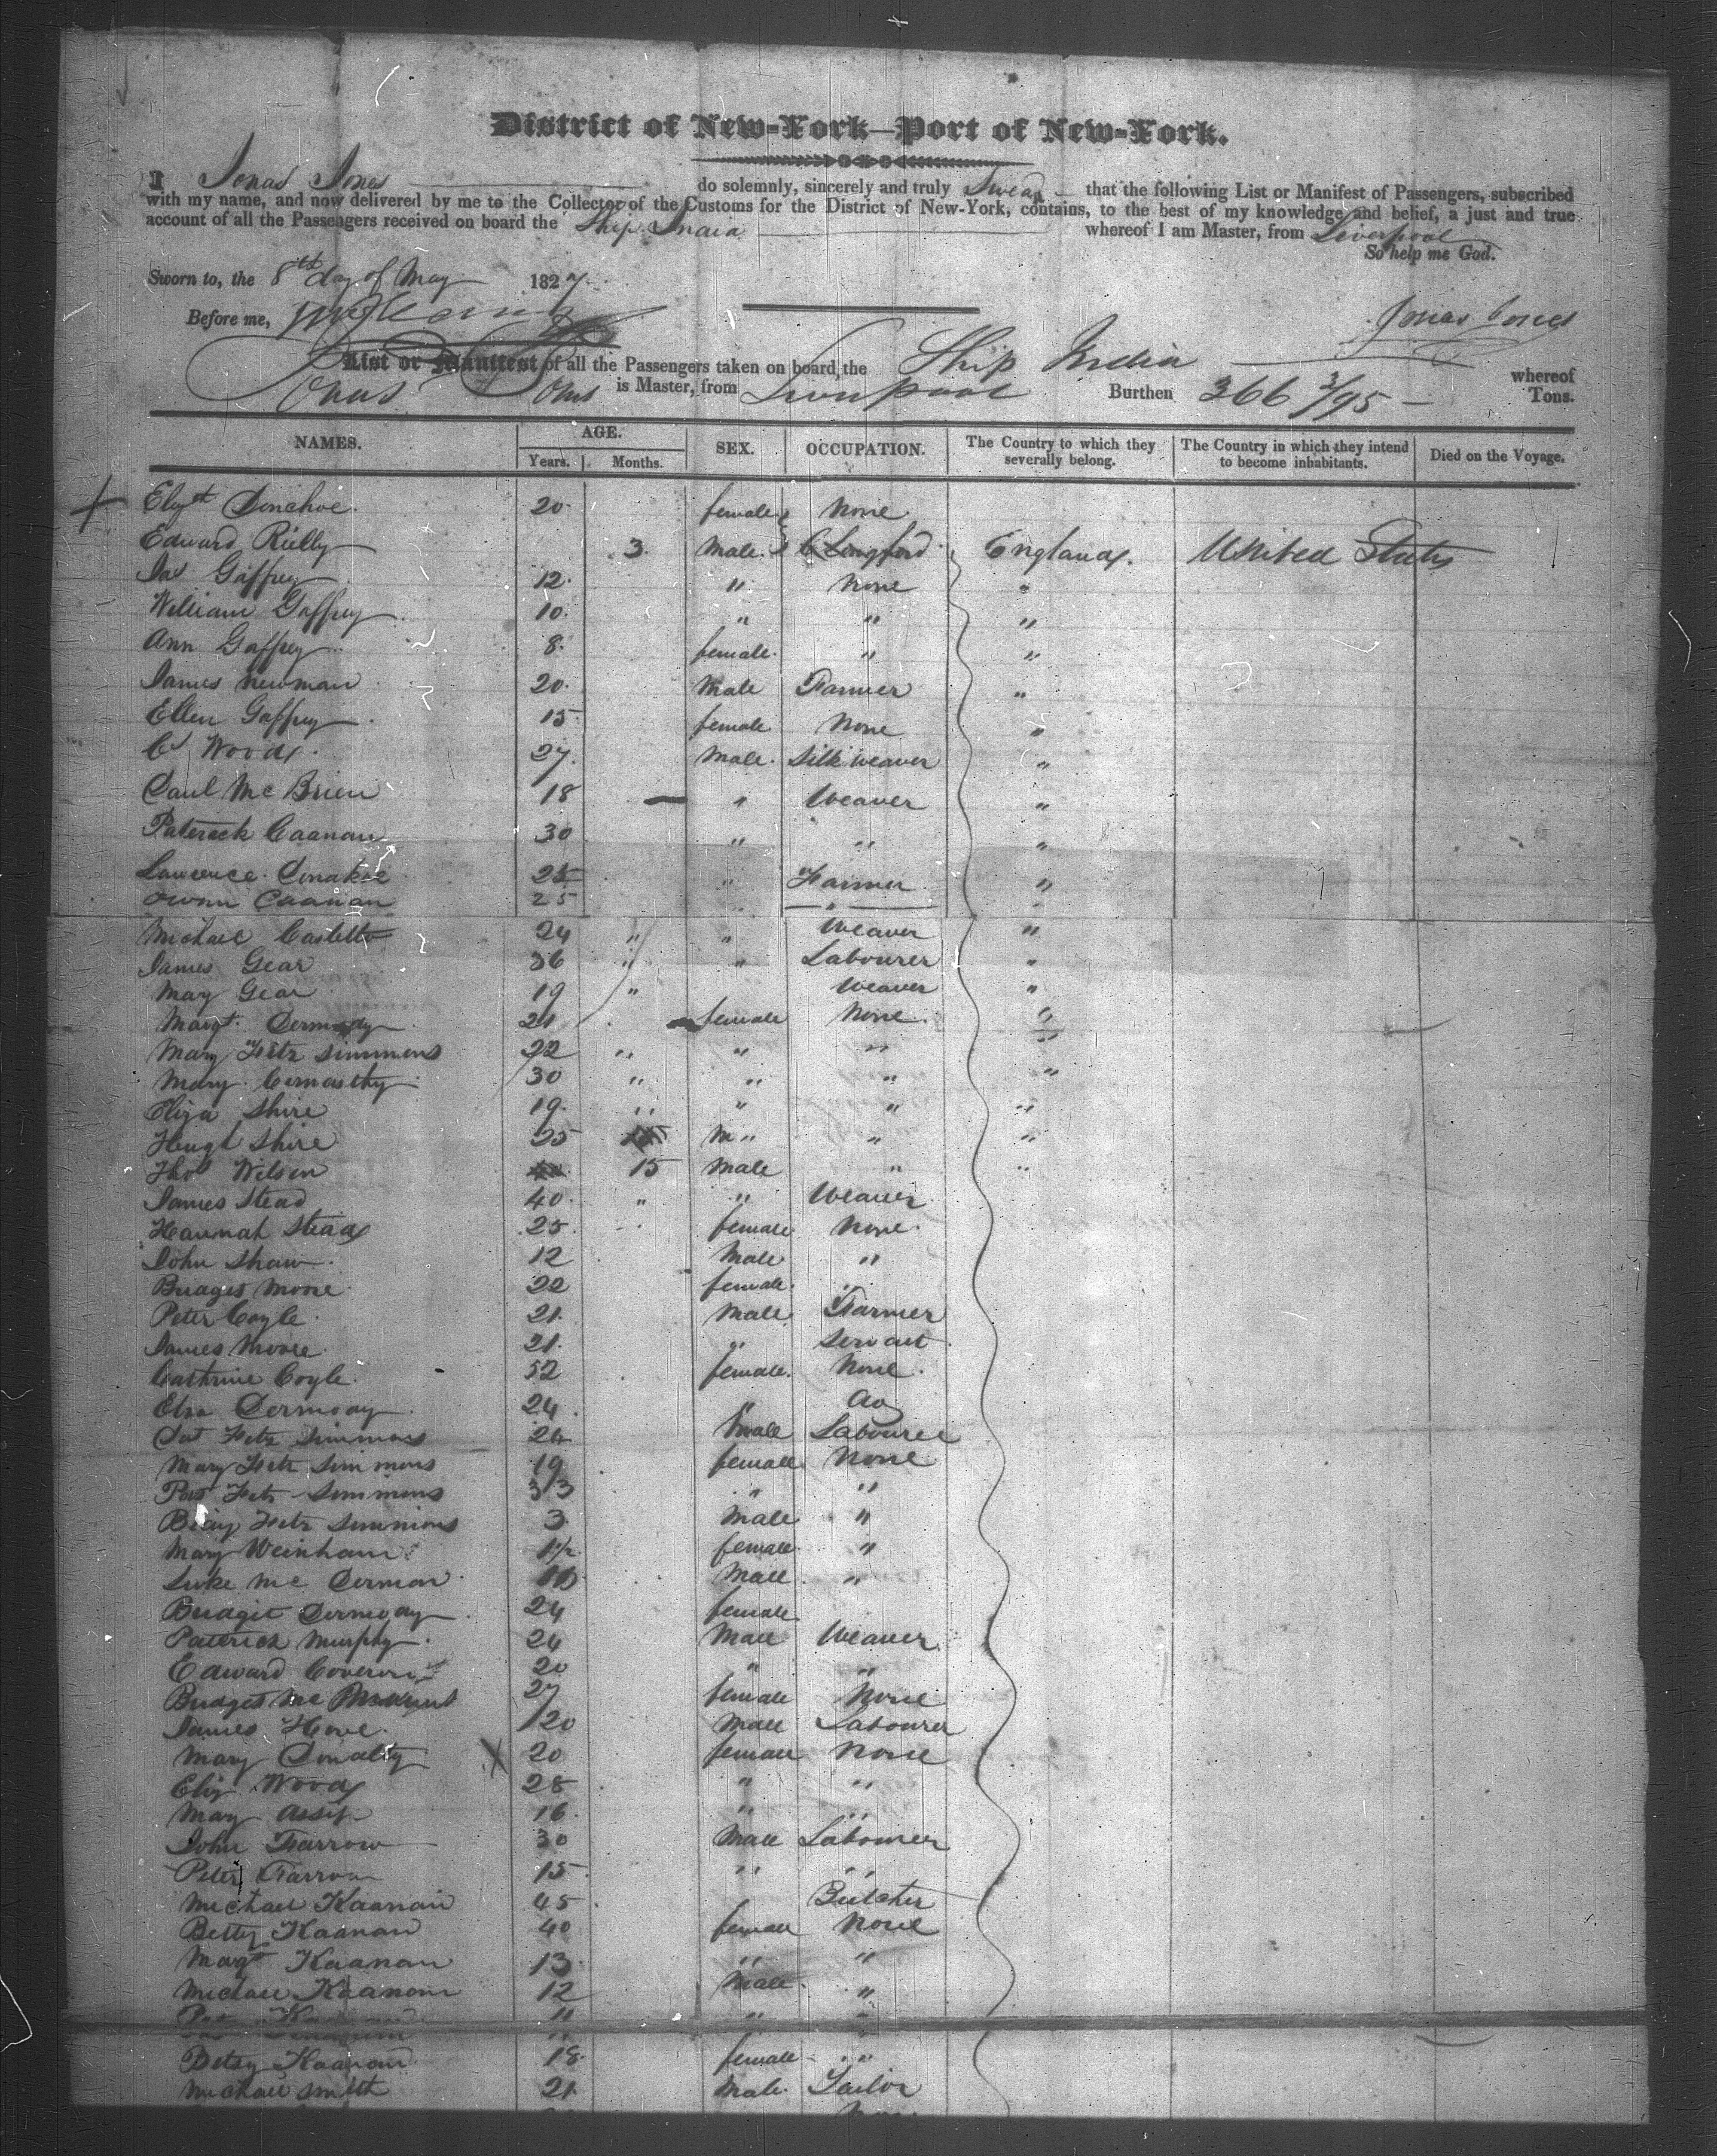 District of New-York—Port of New-York.
I Jonas Jones do solemnly, sincerely and truly Swear that the following List or Manifest of Passengers, subscribed
with my name, and now delivered by me to the Collector of the Customs for the District of New-York, contains, to the best of my knowledge and belief, a just and true
account of all the Passengers received on board the Ship India whereof I am Master, from Liverpool
So help me God.
Sworn to, the 8th day of May 1827
Before me,
Jonas Jones
List or Manifest of all the Passengers taken on board the Ship India whereof
Jonas Jones is Master, from Liverpool Burthen 366 3/95 Tons.
NAMES. AGE. SEX. OCCUPATION. The Country to which they severally belong. The Country in which they intend to become inhabitants. Died on the Voyage.
Years. Months.
Elizth Donahoe 20 female None
Edward Rielly 3 Male England United States
Jas Gaffrey 12 " None "
William Gaffrey 10 " " "
Ann Gaffrey 8 female " "
James Newman 20 Male Farmer "
Ellen Gaffrey 15 female None "
Cs Woods 27 Male Silk weaver "
Paul Mc Brien 18 " Weaver "
Paterick Caanan 30 " " "
Lawrence Donahoe 25 " Farmer "
Owen Caanan 25 " " "
Michael Castello 24 " " Weaver "
James Gear 36 " " Labourer "
May Gear 19 " Weaver "
Margt. Dermody 21 female None "
Mary Fitz Simmons 22 " " " "
Mary 30 " " " "
Eliza Shire 19 " " " "
Hugh Shire 25 M " " "
Thos Wilson 15 Male " "
James Stead 40 " " Weaver
Hannah Stead 25 female None
John Shaw 12 Male "
Bridget Moore 22 female "
Peter Coyle 21 Male Farmer
James Moore 21 " Servant
Cathrine Coyle 52 female None
Eliza Dermody 24 " do
Pat Fitz Simmons 24 Male Labourer
Mary Fitz Simmons 19 female None
Pat Fitz Simmons 33 " "
Fitz Simmons 3 Male "
Mary Weinham 1 1/2 female "
Luke Mc Dermon Male "
Bridgit Dermody 24 female
Paterick Murphy 24 Male Weaver
Edward 20 " "
Bridget Mc 27 female None
James Howe 20 Male Labourer
Mary Donalty 20 female None
Eliz Woods 28 " "
May 16 " "
John Farrow 30 Male Labourer
Peter Farrow 15 " "
Michael Kaanan 45 Butcher
Betty Kaanan 40 female None
Magt Kaanan 13 " "
Michael Kaanan 12 Male "
Pat Kaanan 11 " "
Betsy Kaanan 18 female "
Michael Smith 21 Male Tailor